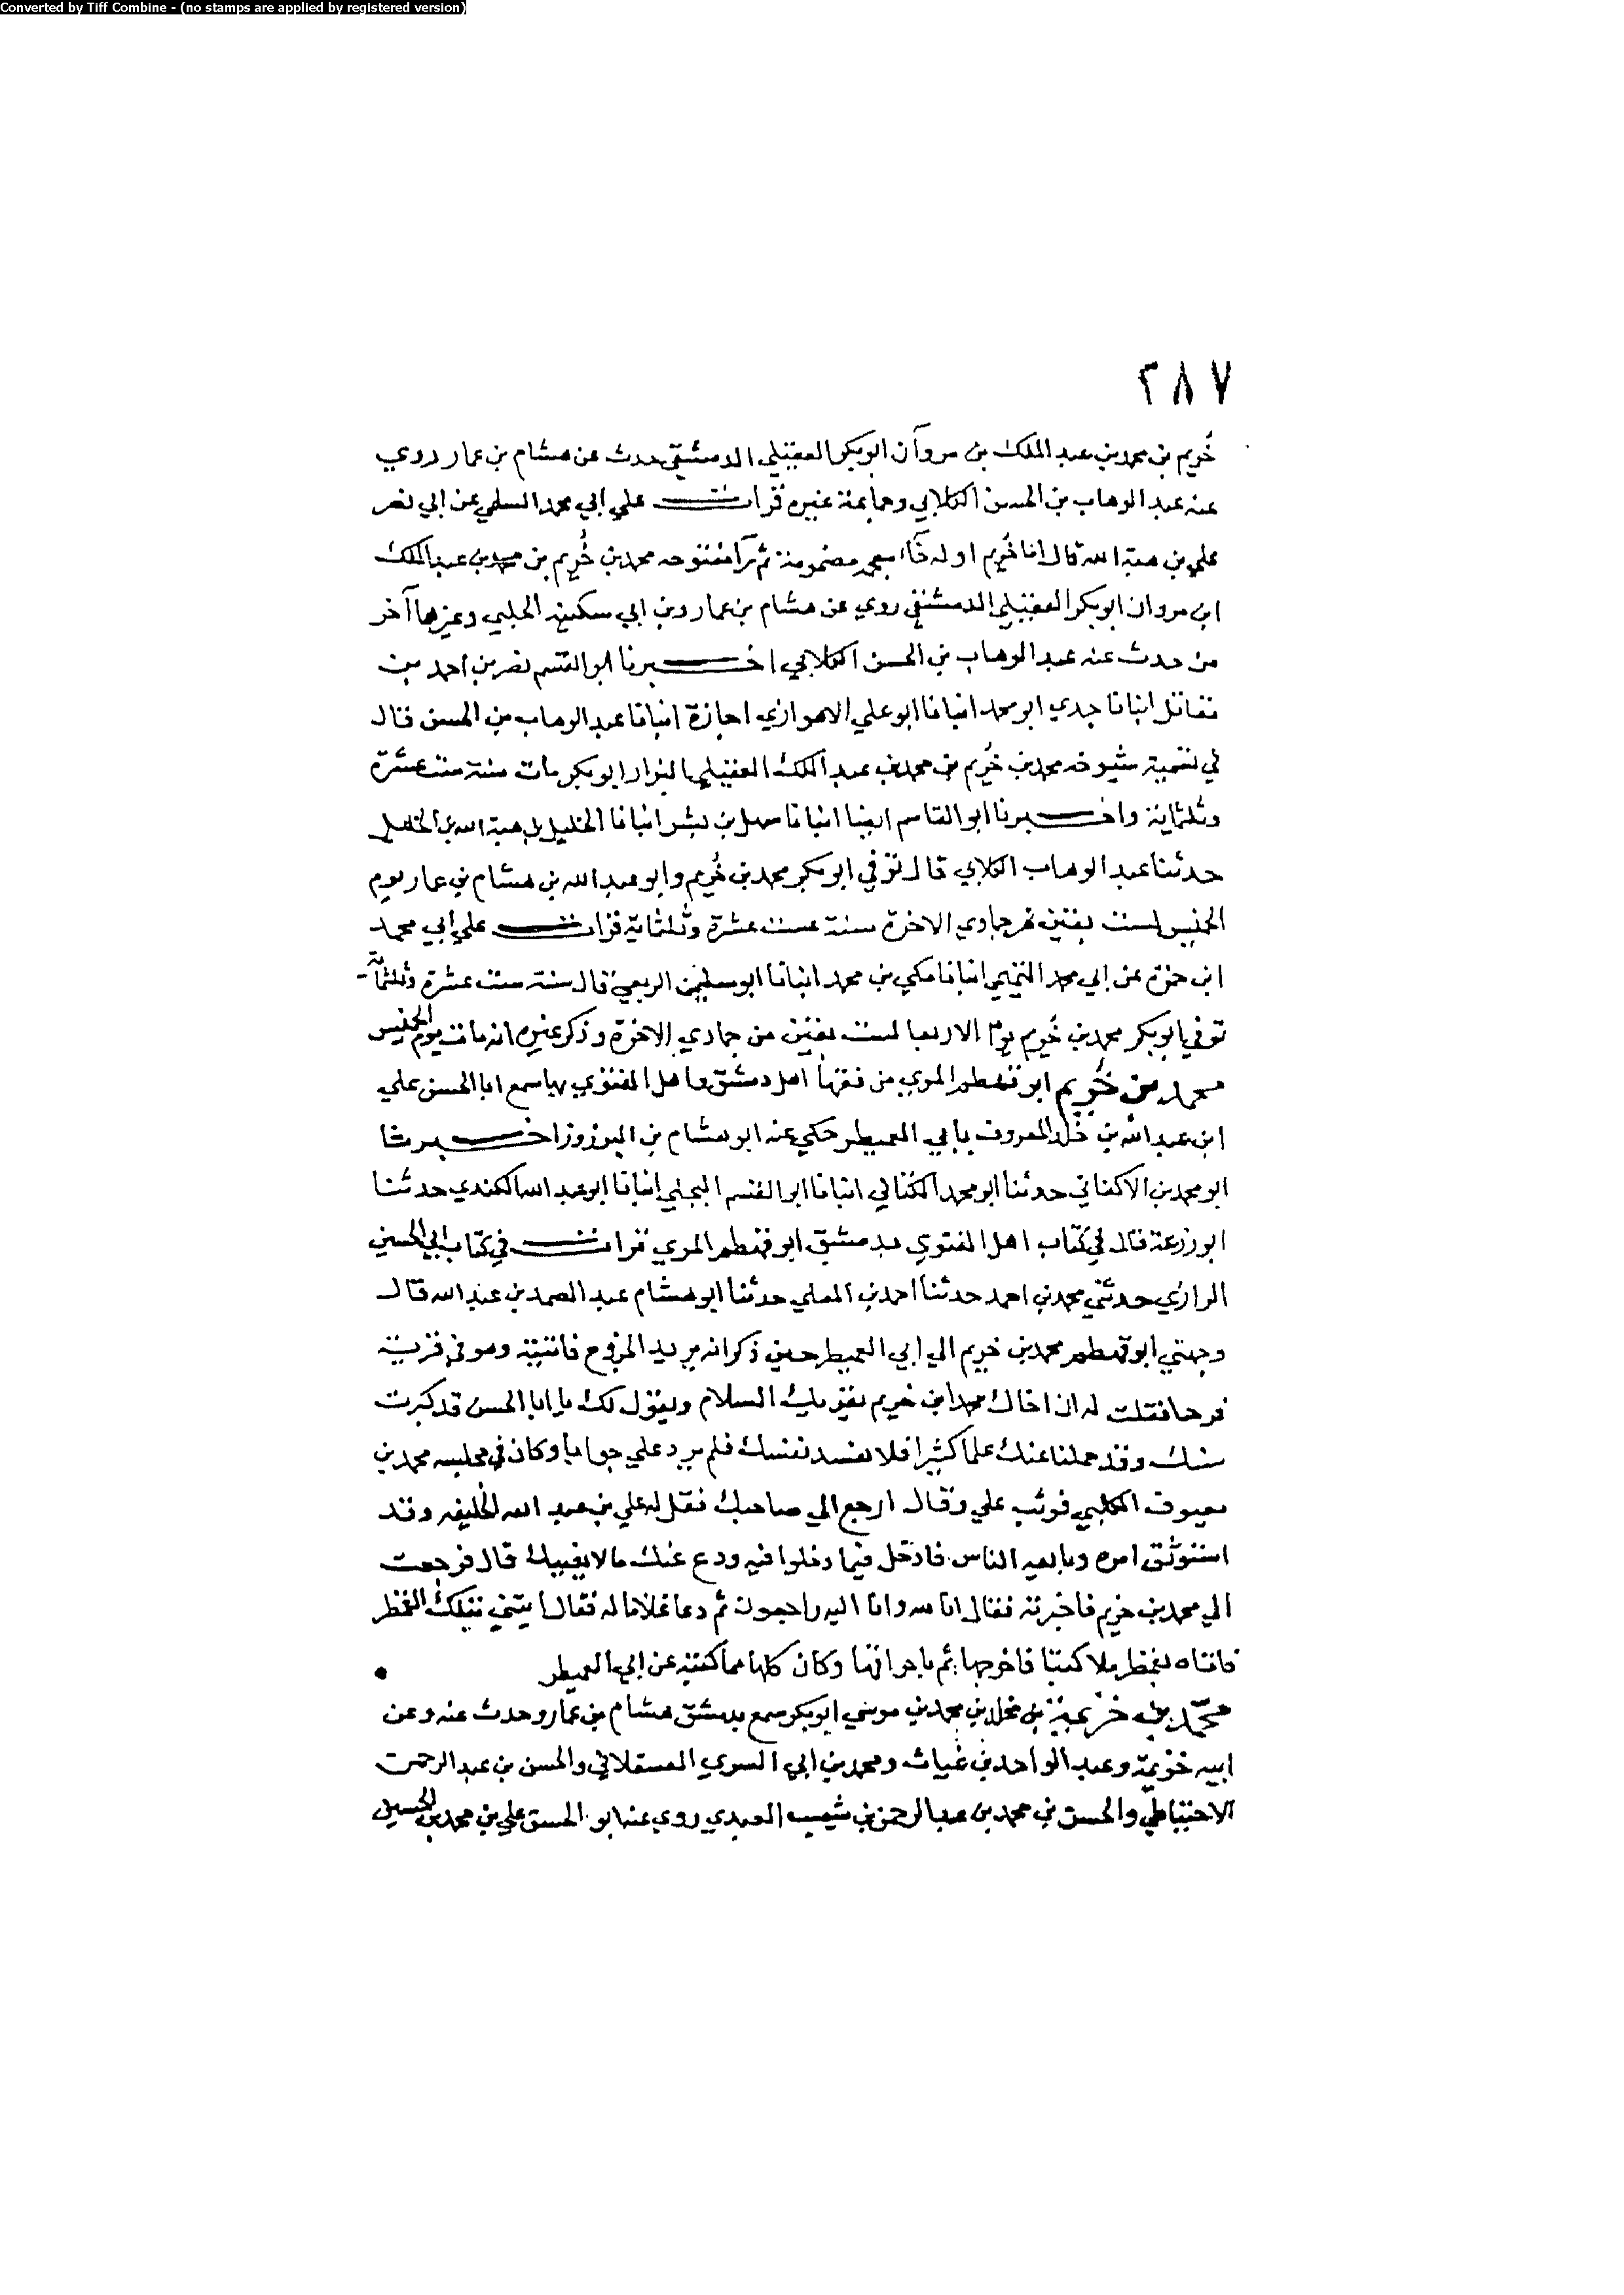 Converted by Tiff Combine - (no stamps are applied by registered version)
٢٨٧
خُريم بن محمد بن عبد الملك بن مروان ابو بكر العقيلي الدمشقي حدث عن هشام بن عمار روي
عنه عبد الوهاب بن الحسن الكلابي وجماعة غيره قرات علي ابي محمد السلمي عن ابي نصر
علي بن هبة الله قال اما خُريم اوله خاء معجمة مضمومة ثم را مفتوحه محمد بن خُريم بن محمد بن عبد الملك
ابن مروان ابو بكر العقيلي الدمشقي روي عن هشام بن عمار وبن ابي سكينه الحلبي وغيرهما آخر
من حدث عنه عبد الوهاب بن الحسن الكلابي اخبرنا ابو القسم نصر بن احمد بن
مقاتل انبانا جدي ابو محمد انبانا ابو علي الاهوازي اجازة انبانا عبد الوهاب بن الحسن قال
في تسمية شيوخه محمد بن خُريم بن محمد بن عبد الملك العقيلي البزار ابو بكر مات سنة ست عشرة
وثلثماية واخبرنا ابو القاسم ايضا انبانا سهل بن بشر انبانا الخليل بن هبة الله بن الخليل
حدثنا عبد الوهاب الكلابي قال توفي ابو بكر محمد بن خُريم وابو عبد الله بن هشام بن عمار يوم
الخميس لست بقين من جمادي الاخرة سنة ست عشرة وثلثماية قرات علي ابي محمد
ابن حمزة عن ابي محمد التميمي انبانا مكي بن محمد انبانا ابو سليمن الربعي قال سنة ست عشرة وثلثماية
توفي ابو بكر محمد بن خُريم يوم الاربعا لست بقين من جمادي الاخرة وذكر غيره انه مات يوم الخميس
محمد بن خُريم ابو قهطم المري من فقها اهل دمشق واهل الفتوي بها سمع ابا الحسن علي
ابن عبد الله بن خلد المعروف بابي العميطر حكي عنه ابو هشام بن البرزوز اخبرنا
ابو محمد بن الاكفاني حدثنا ابو محمد الكتاني انبانا ابو القسم البجلي انبانا ابو عبد الله الكندي حدثنا
ابو زرعة قال في كتاب اهل الفتوي بدمشق ابو قهطم المري قرات في كتاب ابي الحسين
الرازي حدثني محمد بن احمد حدثنا احمد بن المعلي حدثنا ابو هشام عبد الصمد بن عبد الله قال
وجهني ابو قهطم محمد بن خريم الي ابي العميطر حين ذكر انه يريد الخروج فاتيته وهو في قريته
فقلت له ان اخاك محمد ابن خريم يقريك السلام ويقول لك يا ابا الحسن قد كبرت
سنك وقد حملنا عنك علما كثيرا فلا تفسد نفسك فلم يرد علي جوابا وكان في مجلسه محمد بن
معيوف الكلبي فوثب علي وقال ارجع الي صاحبك فقل له علي بن عبد الله الخليفه وقد
استوثق امره وبايعه الناس فادخل فيما دخلوا فيه ودع عنك ما لا يعنيك قال فرجعت
الي محمد بن خريم فاخبرته فقال انا لله وانا اليه راجعون ثم دعا غلاما له فقال ايتني بتلك القمطر
فاتاه بقمطر ملا كتبا فاخرجها ثم باحراقها وكان كلها مما كتبته عن ابي العميطر
محمد بن خزيمة بن مخلد بن محمد بن موسي ابو بكر سمع بدمشق هشام بن عمار وحدث عنه وعن
ابيه خزيمة وعبد الواحد بن غياث ومحمد بن ابي السري العسقلاني والحسن بن عبد الرحمن
الاحتياطي والحسن بن محمد بن عبد الرحمن بن شعيب العبدي روي عنه ابو الحسن علي بن محمد بن الحسين